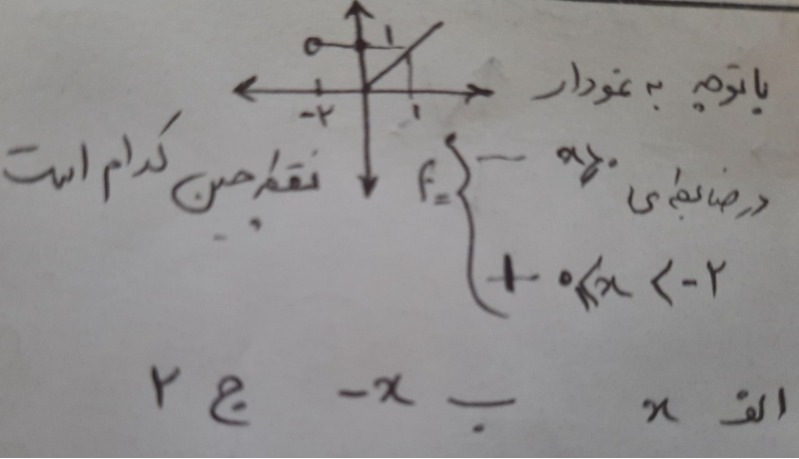 ۱
-۲ ۱
با توجه به نمودار
در ضابطه‌ی f = { — x>۰
نقطه چین کدام است
۱ ۰⩽x <-۲
الف x ب -x ج ۲